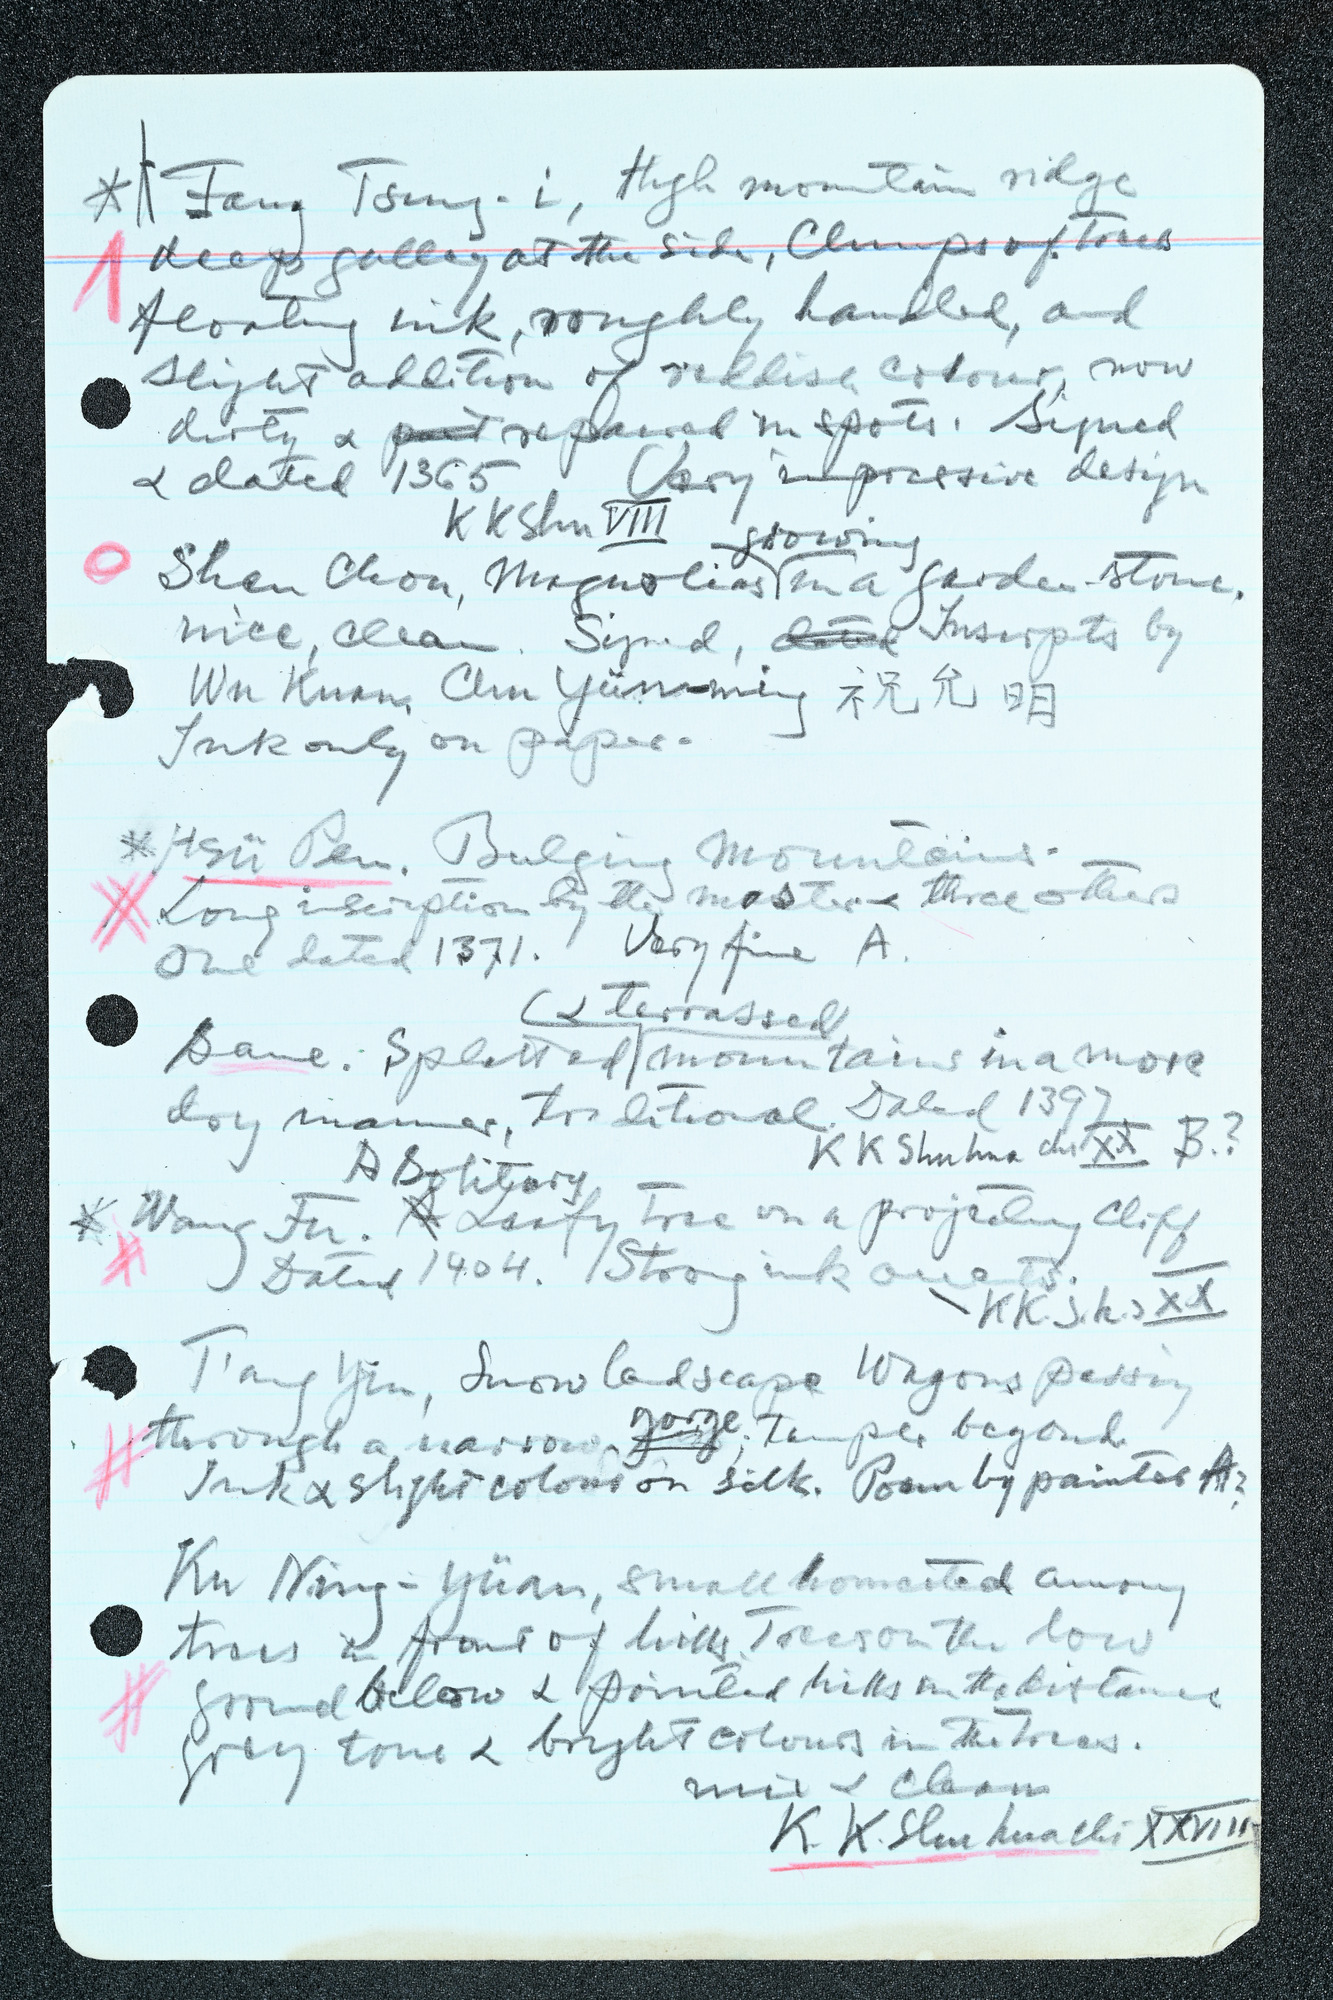 Fang Tsung-i, High mountain ridge
deep gulley at the side, Clumps of trees
floating ink, roughly handled, and
slight addition of reddish colour, now
dirty & part repaired in spots. Signed
& dated 1365 Very impressive design
KKShu VIII
growing
Shen Chou, Magnolias in a garden-stone.
nice, clean. Signed, dated Inscripts by
Wu Kuan, Chu Yün-ming 祝允明
Ink only on paper.
* Hsü Pen. Bulging Mountains.
Long inscription by the master & three others
One dated 1371. Very fine A.
& terrassed
Same. Splitted mountains in a more
dry manner, traditional. Dated 1397
KKShuhua chi XX B.?
A Solitary
* Wang Fu. A Leafy tree on a projecting Cliff
Dated 1404. Strong ink
KK.S.h. XX
T'ang Yin, Snow landscape Wagons passing
through a narrow gorge, Temples beyond
Ink & slight colour on silk. Poem by painter A?
Ku Ning-Yüan, small homested among
trees in front of hills. Trees on the low
ground below & pointed hills in the distance
grey tone & bright colours in the trees.
nice & clean
K. K. Shu hua chi XXVIII